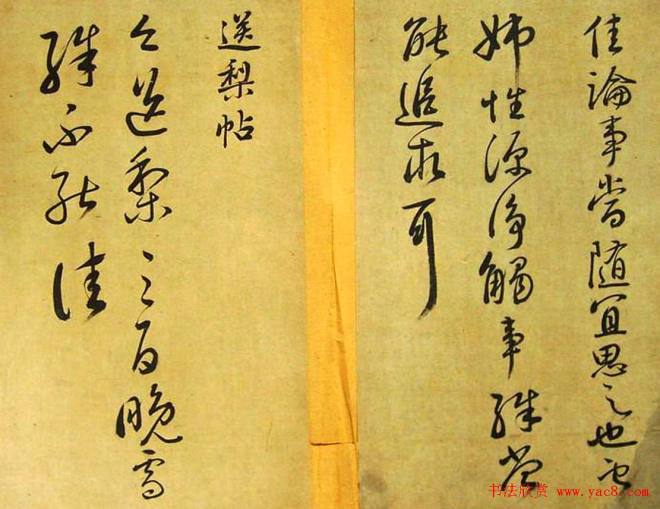 佳論事當隨宜思之也
姊性觸事殊當
能追求耳
送梨帖
今送梨三百晚雪
殊不能佳
书法欣赏 www.yac8.com